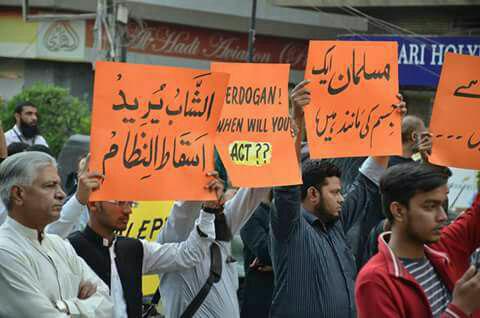 Al-Hadi Aviation
الشاب يريد
اسقاط النظام
ERDOGAN!
WHEN WILL YOU
ACT??
مسلمان ایک
جسم کی مانند ہیں
HOLY